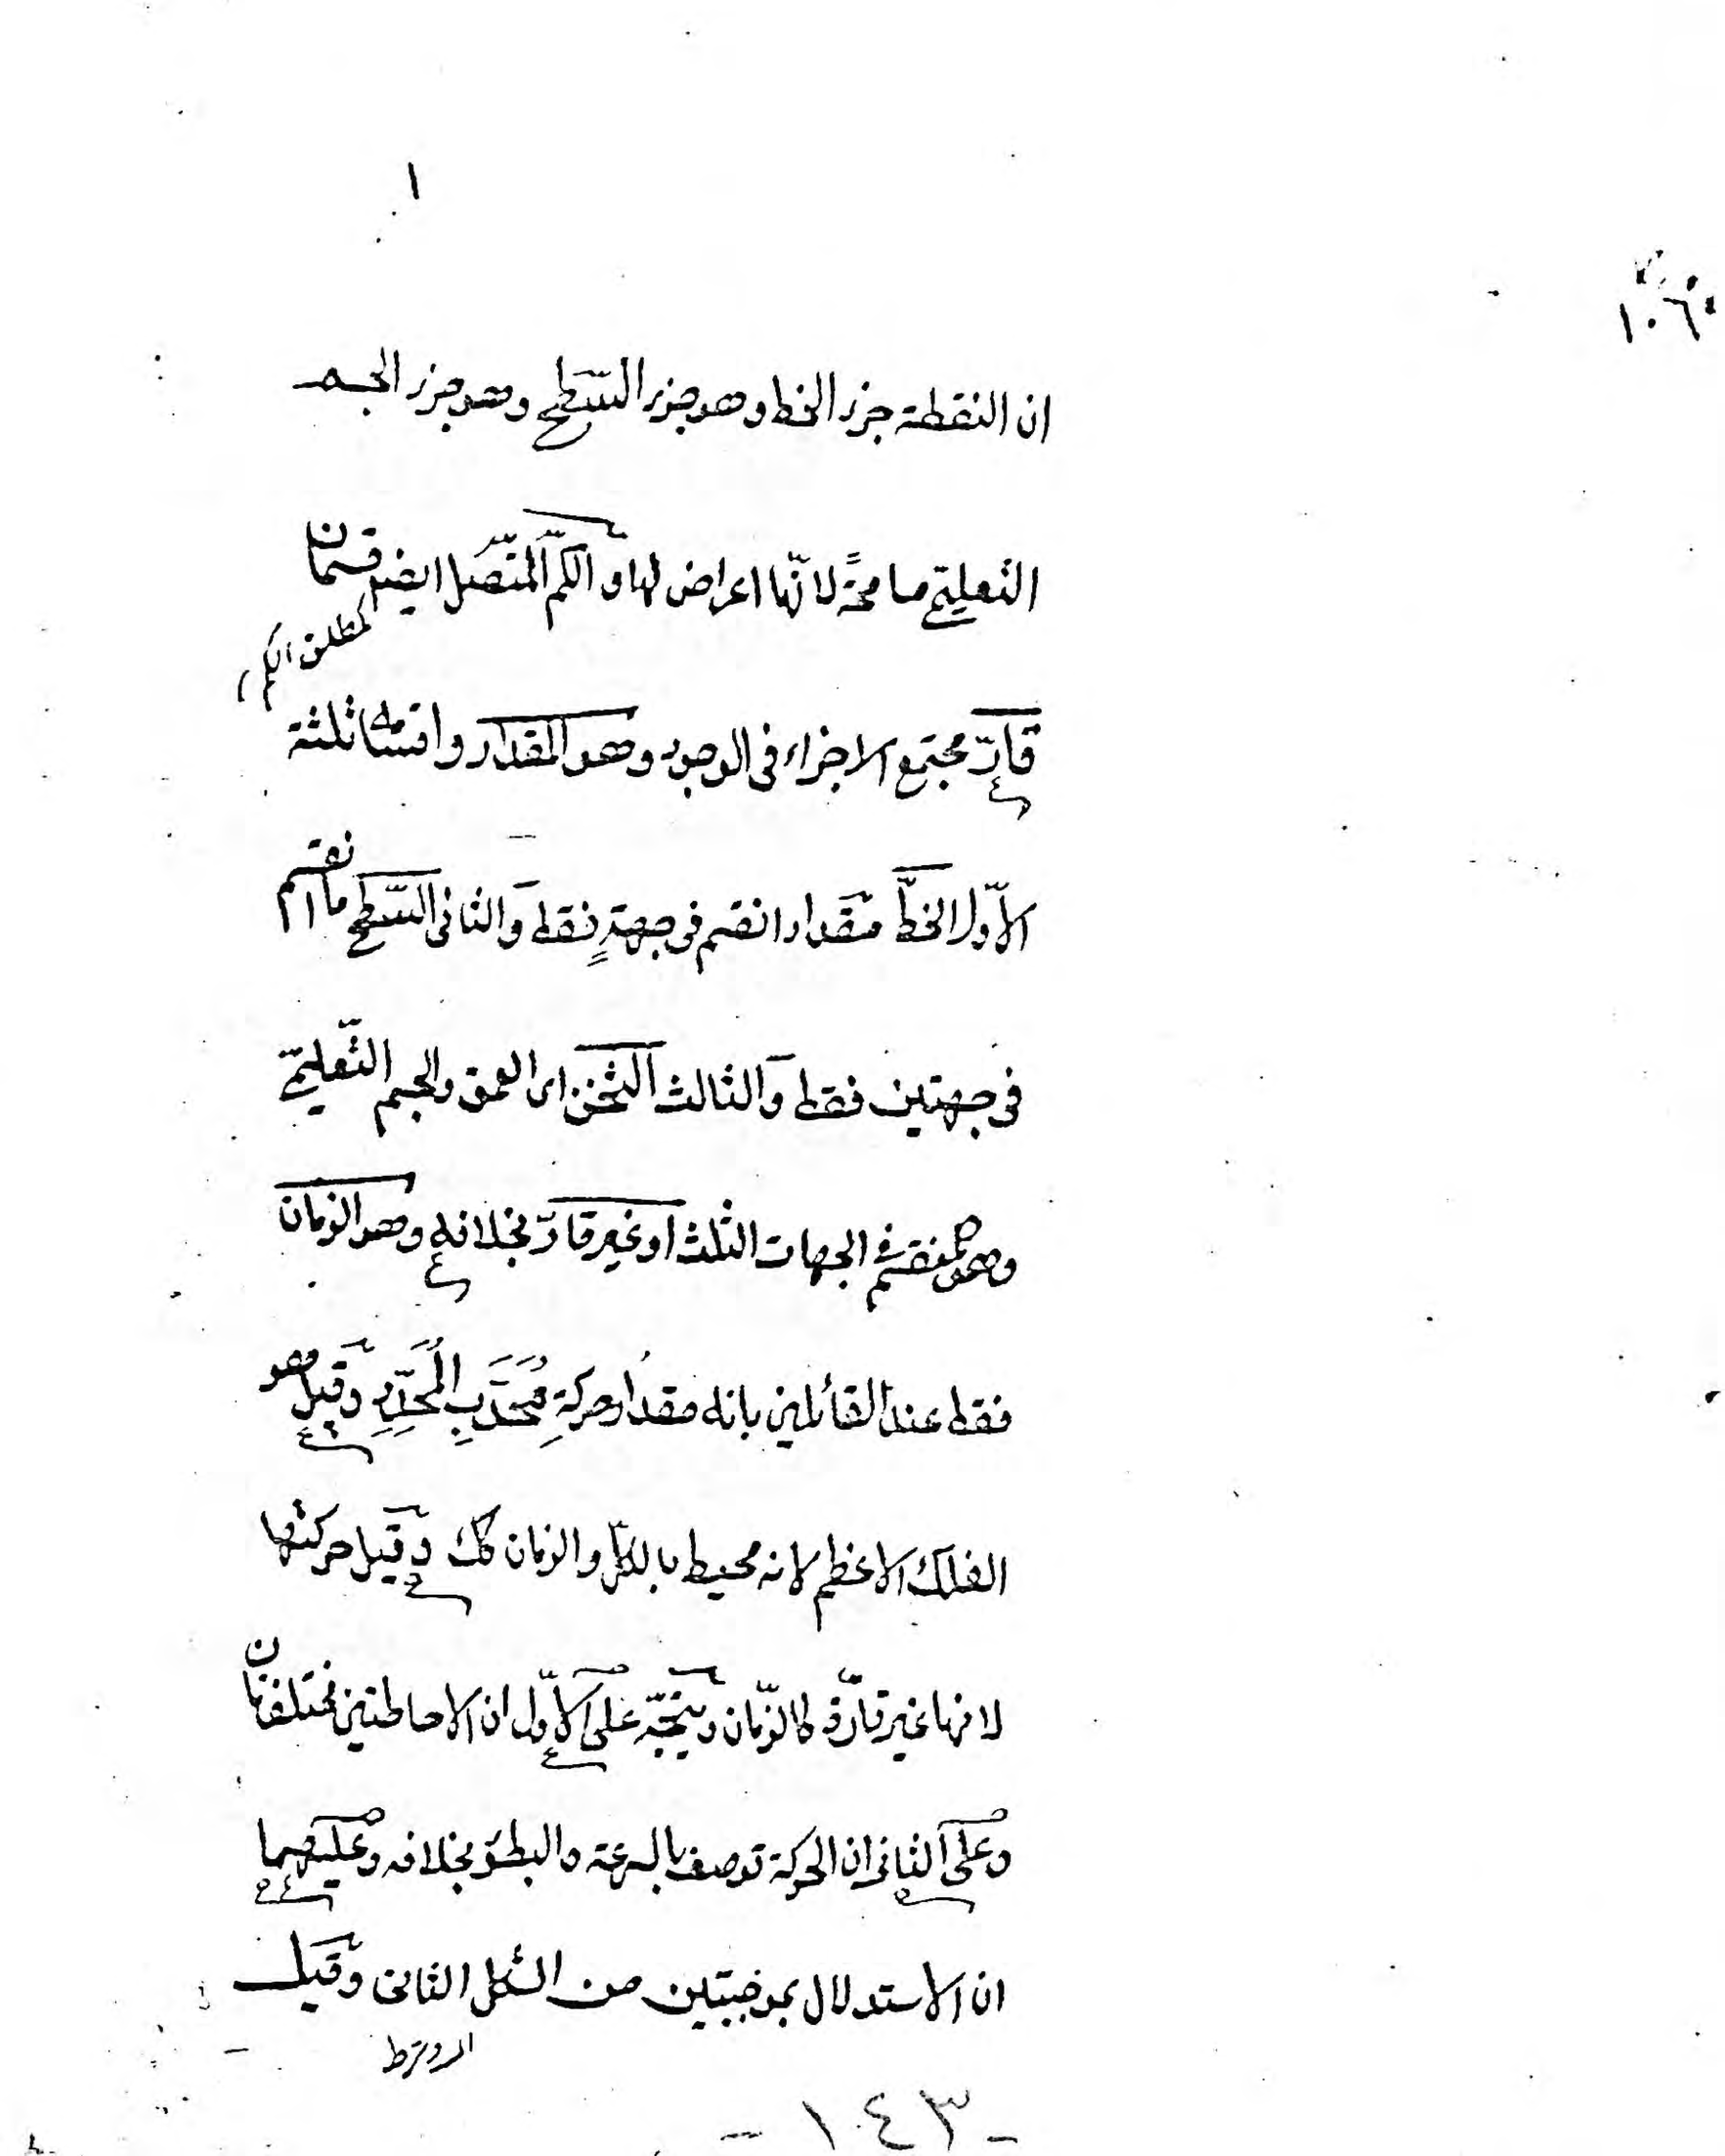 ١
١٠٦
ان النقطة جزء الخط وهو جزء السّطح وهو جزء الجسم
التعليمى مسامحةً لانّها اعراض لها و الكمّ المتّصل ايضا قسمان
قارّ مجتمع الاجزاء فى الوجود وهو المقدار واقسامه ثلثة
الاوّل الخطّ مقدار انقسم فى جهةٍ فقط والثانى السّطح ما انقسم
فى جهتين فقط والثالث الثخن اى العمق والجسم التّعليمى
وهو منقسم فى الجهات الثلث او غير قارّ بخلافه وهو الزمان
فقط عند القائلين بانه مقدار حركةِ مُحَدَّبِ المُحَدِّدِ وقيل هو
الفلك الاعظم لانه محيط بالكلّ والزمان كك وقيل حركتها
لانها غير قارّة كالزّمان ويتّجه على الاوّل ان الاحاطتين مختلفتان
وعلى الثانى ان الحركة توصف بالسرعة والبطؤ بخلافه وعليهما
ان الاستدلال بموجبتين من الشكل الثانى وقيل
- ١٤٣ -